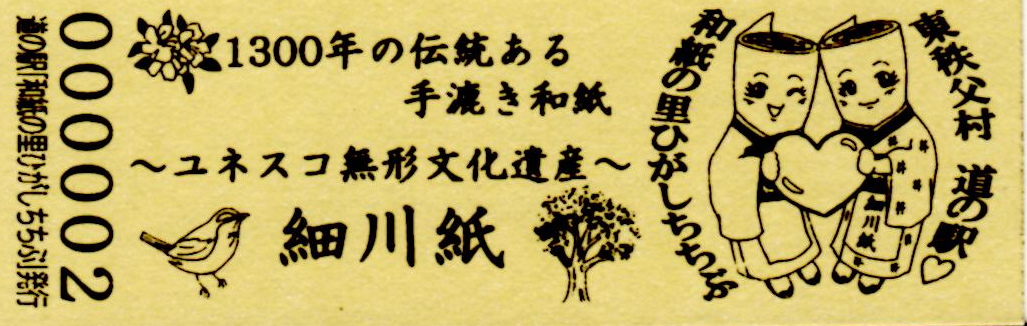 1300年の伝統ある
手漉き和紙
～ユネスコ無形文化遺産～
細川紙
東秩父村 道の駅♡
和紙の里ひがしちちぶ
細川紙
000002
道の駅「和紙の里ひがしちちぶ」発行